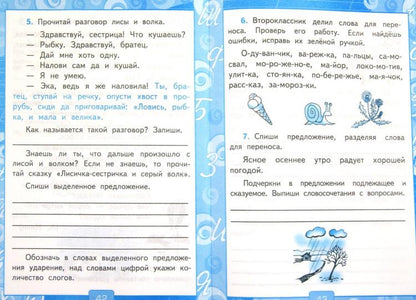 5. Прочитай разговор лисы и волка.
— Здравствуй, сестрица! Что кушаешь?
— Рыбку. Здравствуй, братец.
— Дай мне хоть одну.
— Налови сам да и кушай.
— Я не умею.
— Эка, ведь я же наловила! Ты,
братец, ступай на речку, опусти хвост в про-
рубь, сиди да приговаривай: «Ловись, рыб-
ка, и мала и велика».
Как называется такой разговор? Запиши.
Знаешь ли ты, что дальше произошло с
лисой и волком? Если не знаешь, то прочи-
тай сказку «Лисичка-сестричка и серый волк».
Спиши выделенное предложение.
Обозначь в словах выделенного предложе-
ния ударение, над словами цифрой укажи ко-
личество слогов.
42
6. Второклассник делил слова для пере-
носа. Проверь его работу. Если найдёшь
ошибки, исправь их зелёной ручкой.
О-ду-ван-чик, ва-реж-ка, па-льцы, са-мо-
свал, мо-роже-но-е, ма-йор, локо-мо-тив,
улит-ка, сто-ян-ка, по-бе-ре-жье, ма-я-чок,
расс-каз, за-мороз-ки.
7. Спиши предложение, разделяя слова
для переноса.
Ясное осеннее утро радует хорошей
погодой.
Подчеркни в предложении подлежащее и
сказуемое. Выпиши словосочетания с вопросами.
43